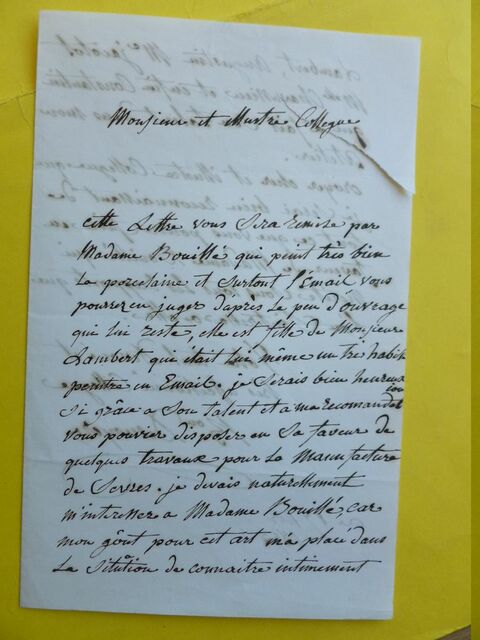 Monsieur et illustre Collegue
cette Lettre vous sera remise par
Madame Bouillé qui peint très bien
la porcelaine et surtout l'émail vous
pourrez en juger d'après le peu d'ouvrage
qui lui reste, elle est fille de Monsieur
Lambert qui était lui meme un très habil
peintre en Email. je serais bien heureux
si grâce a son talent et a ma recomandation
vous pouviez disposer en sa faveur de
quelques travaux pour la Manufacture
de Sevres. je devais naturellement
m'intresser a Madame Bouillé, car
mon gôut pour cet art m'a placé dans
la sitution de connaitre intimement